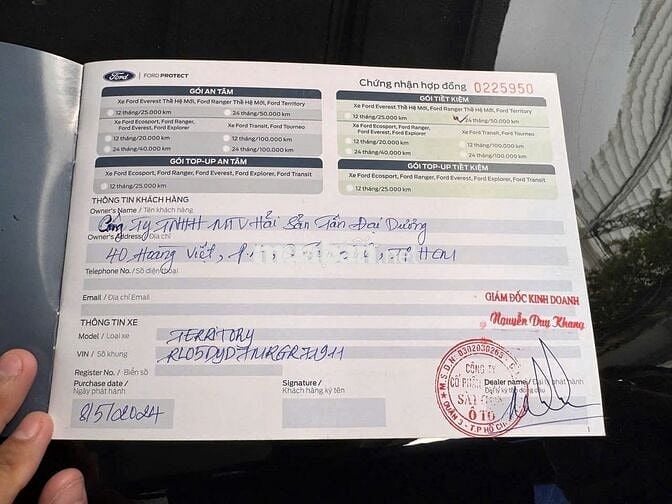 Ford | FORD PROTECT
Chứng nhận hợp đồng 0225950
GÓI AN TÂM
Xe Ford Everest Thế Hệ Mới, Ford Ranger Thế Hệ Mới, Ford Territory
12 tháng/25.000 km 24 tháng/50.000 km
Xe Ford Ecosport, Ford Ranger, Ford Everest, Ford Explorer
Xe Ford Transit, Ford Tourneo
12 tháng/20.000 km 12 tháng/100.000 km
24 tháng/40.000 km 24 tháng/100.000 km
GÓI TIẾT KIỆM
Xe Ford Everest Thế Hệ Mới, Ford Ranger Thế Hệ Mới, Ford Territory
12 tháng/25.000 km 24 tháng/50.000 km
Xe Ford Ecosport, Ford Ranger, Ford Everest, Ford Explorer
Xe Ford Transit, Ford Tourneo
12 tháng/20.000 km 12 tháng/100.000 km
24 tháng/40.000 km 24 tháng/100.000 km
GÓI TOP-UP AN TÂM
Xe Ford Ecosport, Ford Ranger, Ford Everest, Ford Explorer, Ford Transit
12 tháng/25.000 km
GÓI TOP-UP TIẾT KIỆM
Xe Ford Ecosport, Ford Ranger, Ford Everest, Ford Explorer, Ford Transit
12 tháng/25.000 km
THÔNG TIN KHÁCH HÀNG
Owner's Name / Tên khách hàng
Công Ty TNHH MTV Hải Sản Tấn Đại Dương
Owner's Address / Địa chỉ
40 Hoàng Việt, TP HCM
Telephone No./ Số điện thoại
Email / Địa chỉ Email
GIÁM ĐỐC KINH DOANH
Nguyễn Duy Khang
THÔNG TIN XE
Model / Loại xe TERRITORY
VIN / Số khung RL05DYD7MRGR71911
Register No./ Biển số
Purchase date / Ngày phát hành
Signature / Khách hàng ký tên
Dealer name
8/5/2024
M.S.D.N: 0302030265
CÔNG TY
CỔ PHẦN
SÀI GÒN
Ô TÔ
QUẬN 3 - T.P HỒ CHÍ